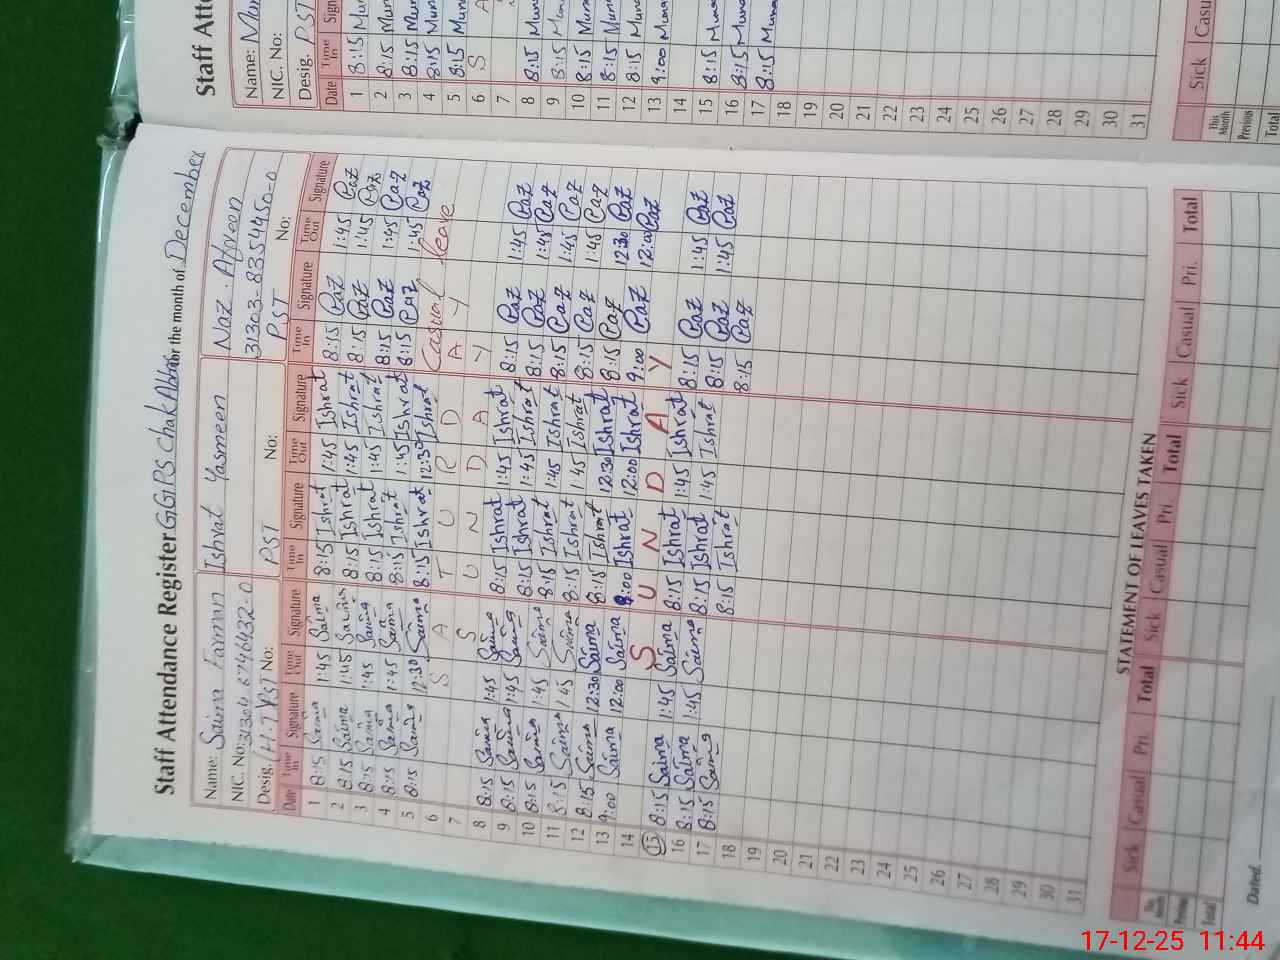 Staff Attendance Register GGPS Chak Abbas for the month of December
Name: Saima Farman Ishrat Yasmeen Naz Afreen
NIC. No: 31304-6746432-0 31303-8354450-0
Desig. (H.T) PST No: PST No: PST No:
Date Time In Signature Time Out Signature Time In Signature Time Out Signature Time In Signature Time Out Signature
1 8:15 Saima 1:45 Saima 8:15 Ishrat 1:45 Ishrat 8:15 Caz 1:45 Caz
2 8:15 Saima 1:45 Saima 8:15 Ishrat 1:45 Ishrat 8:15 Caz 1:45 Caz
3 8:15 Saima 1:45 Saima 8:15 Ishrat 1:45 Ishrat 8:15 Caz 1:45 Caz
4 8:15 Saima 1:45 Saima 8:15 Ishrat 1:45 Ishrat 8:15 Caz 1:45 Caz
5 8:15 Saima 12:30 Saima 8:15 Ishrat 12:30 Ishrat Casual leave
6 S A T U R D A Y
7 S U N D A Y
8 8:15 Saima 1:45 Saima 8:15 Ishrat 1:45 Ishrat 8:15 Caz 1:45 Caz
9 8:15 Saima 1:45 Saima 8:15 Ishrat 1:45 Ishrat 8:15 Caz 1:45 Caz
10 8:15 Saima 1:45 Saima 8:15 Ishrat 1:45 Ishrat 8:15 Caz 1:45 Caz
11 8:15 Saima 1:45 Saima 8:15 Ishrat 1:45 Ishrat 8:15 Caz 1:45 Caz
12 8:15 Saima 12:30 Saima 8:15 Ishrat 12:30 Ishrat 8:15 Caz 12:30 Caz
13 9:00 Saima 12:00 Saima 9:00 Ishrat 12:00 Ishrat 9:00 Caz 12:00 Caz
14 S U N D A Y
15 8:15 Saima 1:45 Saima 8:15 Ishrat 1:45 Ishrat 8:15 Caz 1:45 Caz
16 8:15 Saima 1:45 Saima 8:15 Ishrat 1:45 Ishrat 8:15 Caz 1:45 Caz
17 8:15 Saima 8:15 Ishrat 8:15 Caz
18
19
20
21
22
23
24
25
26
27
28
29
30
31
STATEMENT OF LEAVES TAKEN
Sick Casual Pri. Total Sick Casual Pri. Total Sick Casual Pri. Total
This Month
Previous
Total
Dated.
Staff Atte
Name: Mun
NIC. No:
Desig. PST
Date Time In Sign
1 8:15 Mun
2 8:15 Mun
3 8:15 Mun
4 8:15 Mun
5 8:15 Mun
6 S A
7
8 8:15 Mun
9 8:15 Mun
10 8:15 Mun
11 8:15 Mun
12 8:15 Mun
13 9:00 Mun
14
15 8:15 Muna
16 8:15 Muna
17 8:15 Muna
18
19
20
21
22
23
24
25
26
27
28
29
30
31
Sick Casu
This Month
Previous
Total
17-12-25 11:44